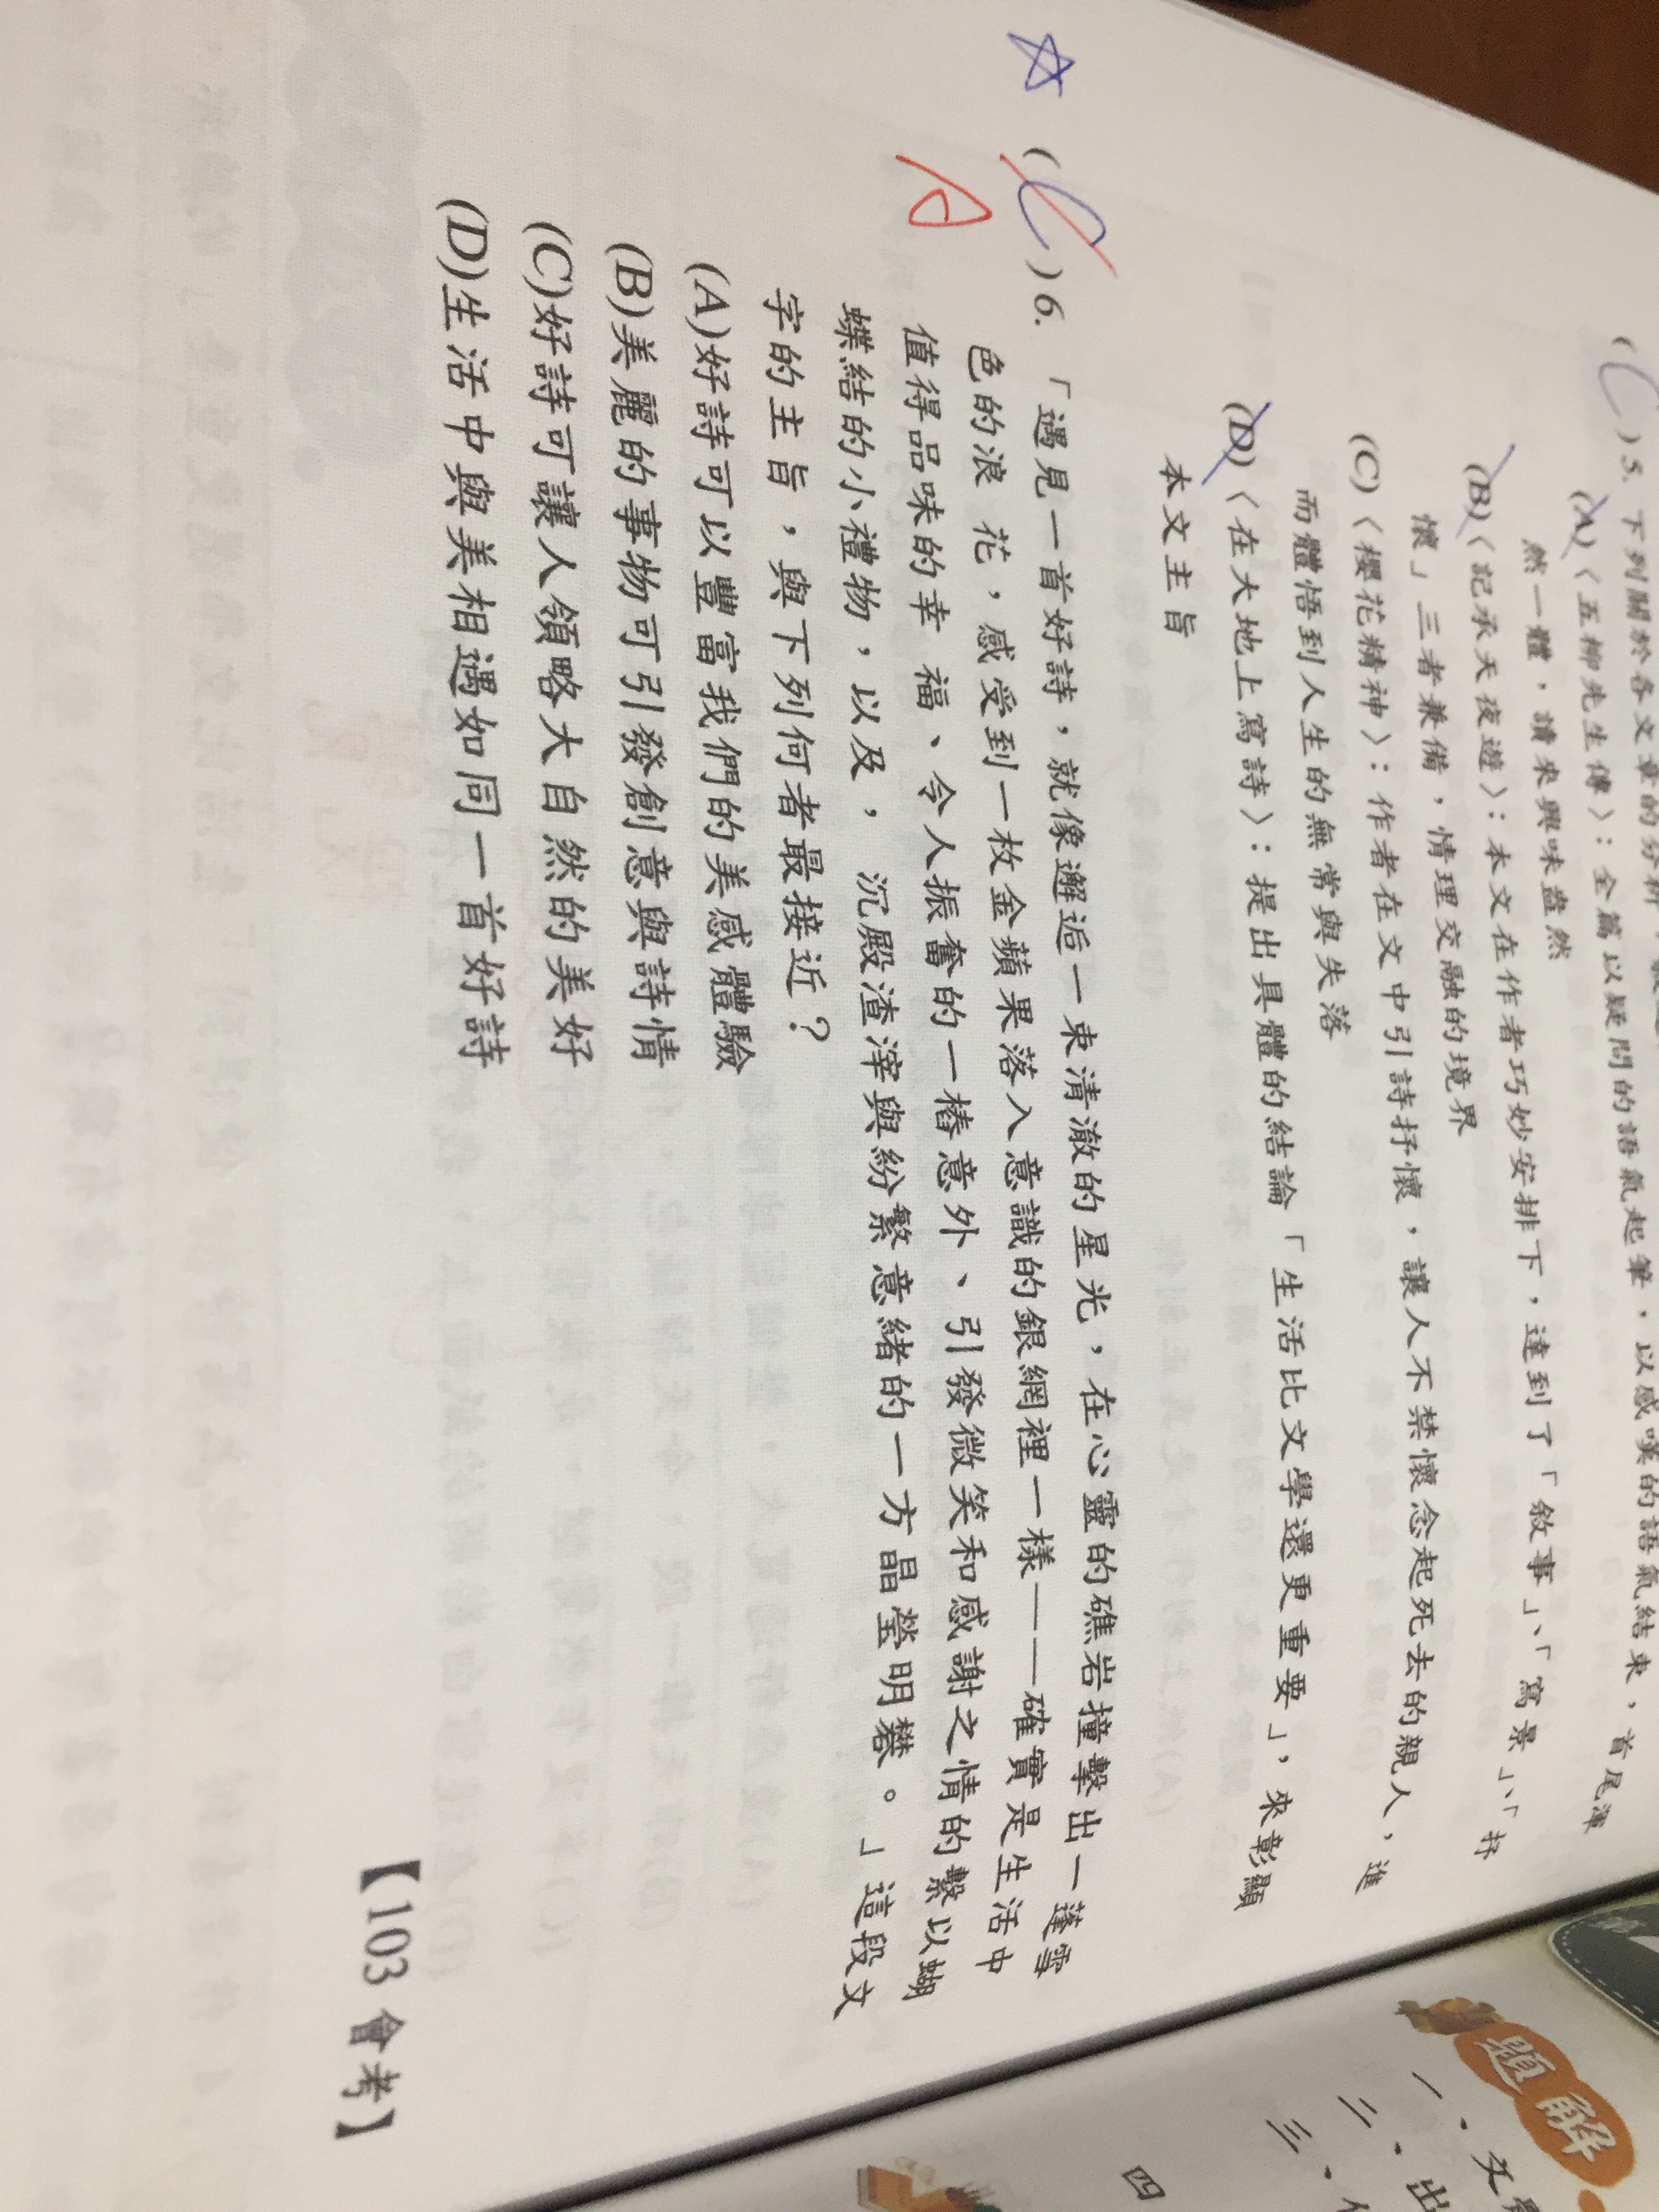 (C)5. 下列關於各文章的分析,
(A)〈五柳先生傳〉:全篇以疑問的語氣起筆,以感嘆的語氣結束,首尾渾
然一體,讀來興味盎然
(B)〈記承天夜遊〉:本文在作者巧妙安排下,達到了「敘事」、「寫景」、「抒
懷」三者兼備,情理交融的境界
(C)〈櫻花精神〉:作者在文中引詩抒懷,讓人不禁懷念起死去的親人,進
而體悟到人生的無常與失落
(D)〈在大地上寫詩〉:提出具體的結論「生活比文學還更重要」,來彰顯
本文主旨
☆(C)6. 「遇見一首好詩,就像邂逅一束清澈的星光,在心靈的礁岩撞擊出一蓬雪
A
色的浪 花,感受到一枚金蘋果落入意識的銀網裡一樣——確實是生活中
值得品味的幸 福、令人振奮的一樁意外、引發微笑和感謝之情的繫以蝴
蝶結的小禮物,以及, 沉殿渣滓與紛繁意緒的一方晶瑩明礬。」這段文
字的主旨,與下列何者最接近?
(A)好詩可以豐富我們的美感體驗
(B)美麗的事物可引發創意與詩情
(C)好詩可讓人領略大自然的美好
(D)生活中與美相遇如同一首好詩
【103 會考】
題解
一、
二、出
三、
四